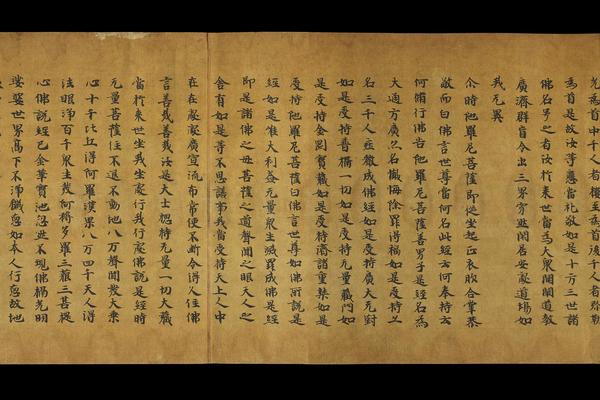 光為首中千人者樓至為首後千人者弥勒
為首是故汝等應當礼敬如是十方三世諸
佛名号之者汝於来世當為大眾開闡道教
廣濟群盲令出三界閑居安處道場如
我无異
尒時他羅尼菩薩即從坐起正衣服合掌恭
敬而白佛言世尊當何名此經云何奉持云
何脩行佛告他羅尼菩薩善男子是經名為
大通方廣之名懺悔除罪得福如是受持又
名三千人並敬成佛經如是受持廣大无對
如是受持普稱一切如是受持无量藏門如
是受持金剛寶藏如是受持濟諸重業如是
受持他羅尼菩薩白佛言世尊如佛所說是
經如是惟大利益无量眾生滅罪成佛是經
即是諸佛之母菩薩之道聲聞之眼天人之
舍有如是等不思議事我當受持天上人中
在在處處廣宣流布常使不断令得人住佛
言善哉善哉汝是大士摠持无量一切大藏
當於来世坐我坐處行我行處佛說是經時
无量菩薩住不退不動地八万聲聞發大乘
心十千比丘得阿羅漢果八万四千天人得
法眼淨百千眾生發何耨多羅三藐三菩提
心佛說經已金華寶池忽然不現佛攝光明
娑婆世界高下不淨如本人行故地